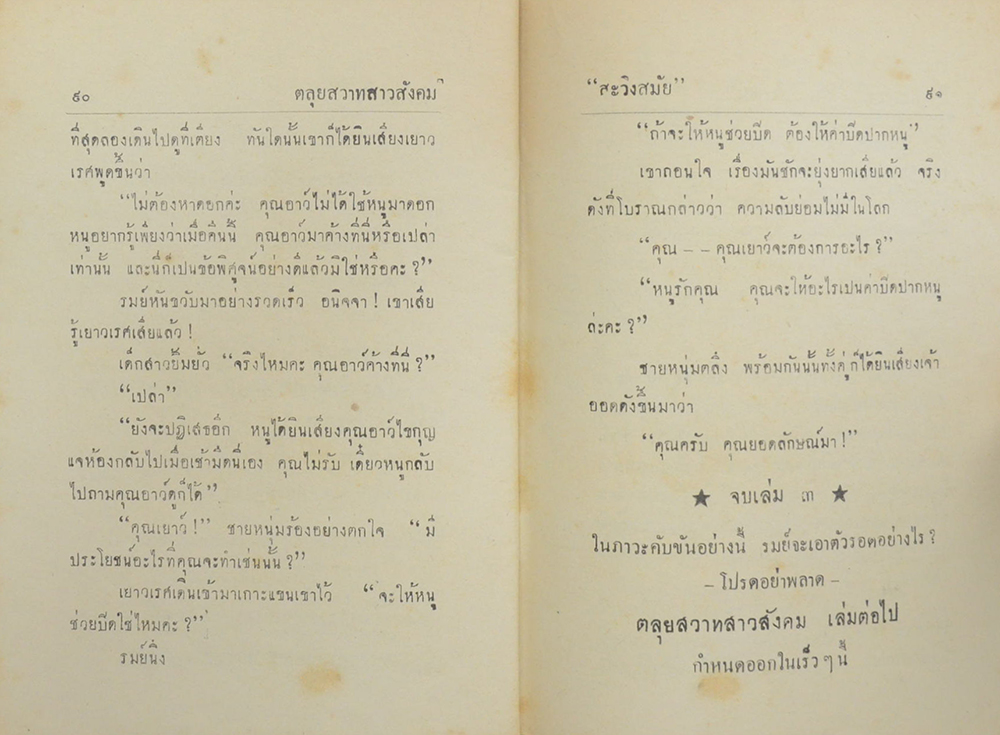 ๙๐ ตลุยสวาทสาวสังคม
ที่สุดลองเดินไปดูที่เตียง ทันใดนั้นเขาก็ได้ยินเสียงเยาว
เรศพูดขึ้นว่า
“ไม่ต้องหาดอกค่ะ คุณอาว์ไม่ได้ใช้หนูมาดอก
หนูอยากรู้เพียงว่าเมื่อคืนนี้ คุณอาว์มาค้างที่นี่หรือเปล่า
เท่านั้น และนี่ก็เป็นข้อพิศูจน์อย่างดีแล้วมิใช่หรือคะ ?”
รมย์หันขวับมาอย่างรวดเร็ว อนิจจา ! เขาเสีย
รู้เยาวเรศเสียแล้ว !
เด็กสาวยิ้มยั่ว “จริงไหมคะ คุณอาว์ค้างที่นี่ ?”
“เปล่า”
“ยังจะปฏิเสธอีก หนูได้ยินเสียงคุณอาว์ไขกุญ
แจห้องกลับไปเมื่อเช้ามืดนี่เอง คุณไม่รับ เดี๋ยวหนูกลับ
ไปถามคุณอาว์ดูก็ได้”
“คุณเยาว์ !” ชายหนุ่มร้องอย่างตกใจ “มี
ประโยชน์อะไรที่คุณจะทำเช่นนั้น ?”
เยาวเรศเดินเข้ามาเกาะแขนเขาไว้ “จะให้หนู
ช่วยปิดใช่ไหมคะ ?”
รมย์นิ่ง
“สะวิงสมัย” ๙๑
“ถ้าจะให้หนูช่วยปิด ต้องให้ค่าปิดปากหนู”
เขาถอนใจ เรื่องมันชักจะยุ่งยากเสียแล้ว จริง
ดังที่โบราณกล่าวว่า ความลับย่อมไม่มีในโลก
“คุณ – – คุณเยาว์จะต้องการอะไร ?”
“หนูรักคุณ คุณจะให้อะไรเปนค่าปิดปากหนู
ล่ะคะ ?”
ชายหนุ่มตลึง พร้อมกันนั้นทั้งคู่ก็ได้ยินเสียงเจ้า
ออดดังขึ้นมาว่า
“คุณครับ คุณยอดลักษณ์มา !”
★ จบเล่ม ๓ ★
ในภาวะคับขันอย่างนี้ รมย์จะเอาตัวรอดอย่างไร ?
– โปรดอย่าพลาด –
ตลุยสวาทสาวสังคม เล่มต่อไป
กำหนดออกในเร็ว ๆ นี้